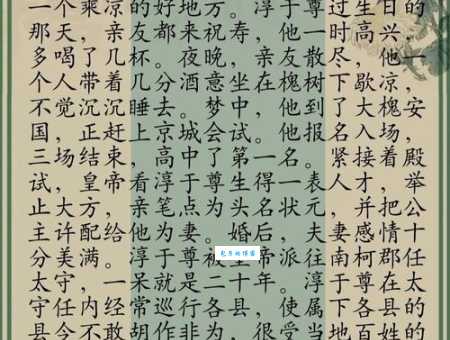 一个乘凉的好地方。淳于尊过生日的
那天，亲友都来祝寿，他一时高兴，
多喝了几杯。夜晚，亲友散尽，他一
个人带着几分酒意坐在槐树下歇凉，
不觉沉沉睡去。梦中，他到了大槐安
国，正赶上京城会试。他报名入场，
三场结束，高中了第一名。紧接着殿
试，皇帝看淳于尊生得一表人才，举
止大方，亲笔点为头名状元，并把公
主许配给他为妻。婚后，夫妻感情十
分美满。淳于尊被皇帝派往南柯郡任
太守，一呆就是二十年。淳于尊在太
守任内经常巡行各县，使属下各县的
县令不敢胡作非为，很受当地百姓的